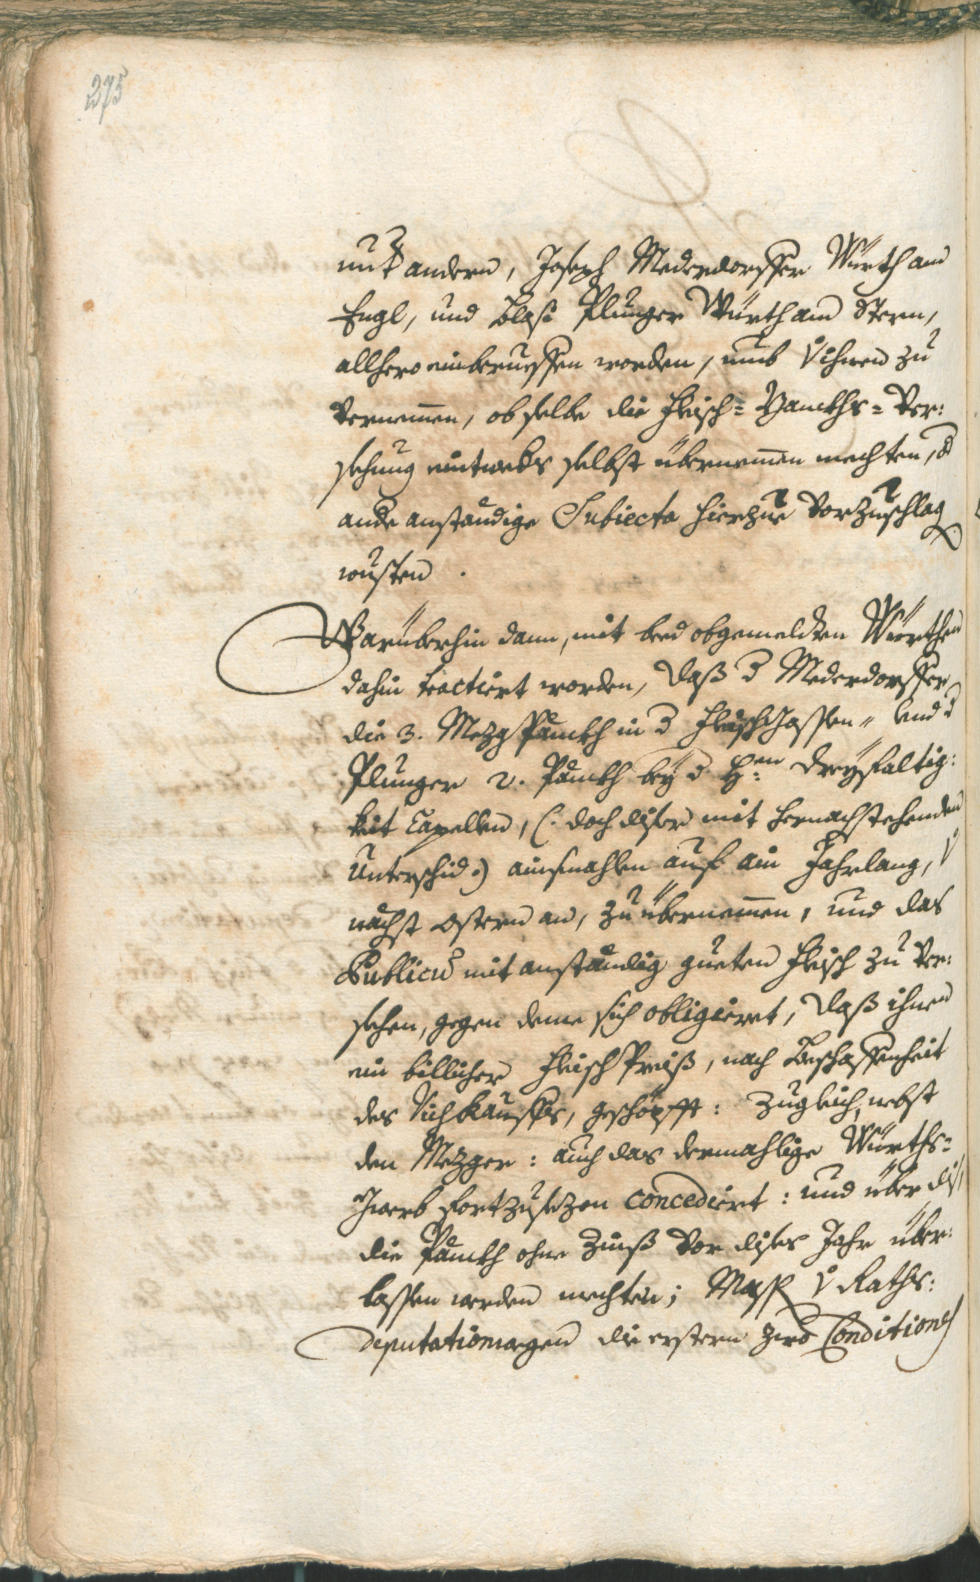 275
unter andern, Joseph Mederdorffer Würth am
Engl, und Blasi Plunger Würth am Stern,
allhero einberueffen worden, umb v ihnen zu
vernemen, ob selbe die Fleisch= Banckhs= Ver:
sehung eintweds selbst übernemen mechten, od
ande anständige Subiecta hierzue vorzuschlag
wusten.
Warüberhin dann, mit beed obgemeldten Würthen
dahin tractiert worden, daß d Mederdorffer
die 3. Mezg Pänckh in d Fleischgassen„ und d
Plunger 2. Pänckh bey d Hen Dreyfaltig:
keit Capellen, (: doch diser mit hernachstehenden
Unterschid :) ainsmahlen auf ain Jahrlang, v
nächst Ostern an, zu übernemen, und das
Publicũ mit anständig gueten Fleisch zu ver:
sehen, gegen deme sich obligieret, daß ihnen
ein billicher Fleisch Preiß, nach Beschaffenheit
des Vichkauffs, geschöpfft: zugleich, nebst
den Mezger: auch das dermahlige Würths=
Gwerb fortzusezen concediert: und über diß
die Pänckh ohne Zinß vor dises Jahr über:
lassen werden mechten; Mass v Raths:
deputationwegen die erstern zwo Conditiones